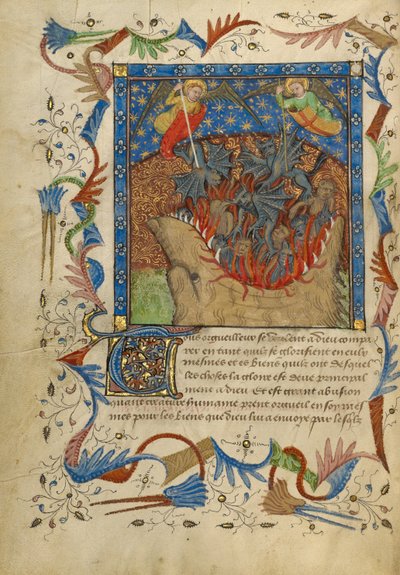 Tous orgueilleux se veulent a dieu compa
rer en tant quilz se glorifient en eulx
mesmes et es biens quilz ont desquel
les choses la gloire est deue principal
ment a dieu Et est grant abusion
quant creature humaine prent orgueil en soy mes
mes pour les biens que dieu lui a envoye par lesquelz